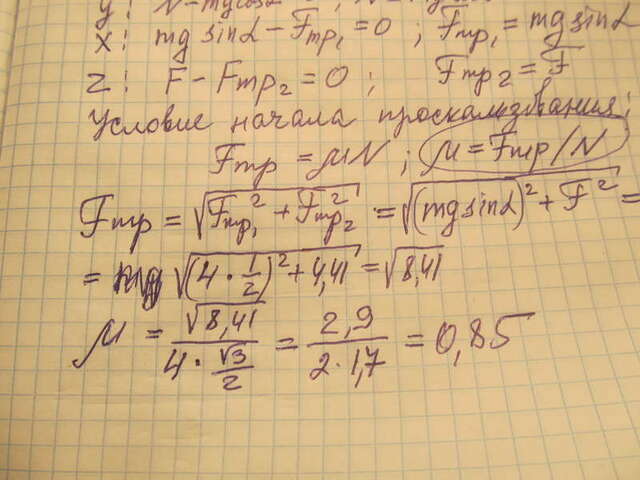 y: N - mg cosα
x: mg sinα - Fтр₁ = 0 ; Fтр₁ = mg sinα
z: F - Fтр₂ = 0 ; Fтр₂ = F
Условие начала проскальзывания:
Fтр = μN ; μ = Fтр/N
Fтр = √(Fтр₁² + Fтр₂²) = √((mg sinα)² + F²) =
= √((4 · 1/2)² + 4,41) = √8,41
μ = √8,41 / (4 · √3/2) = 2,9 / (2 · 1,7) = 0,85